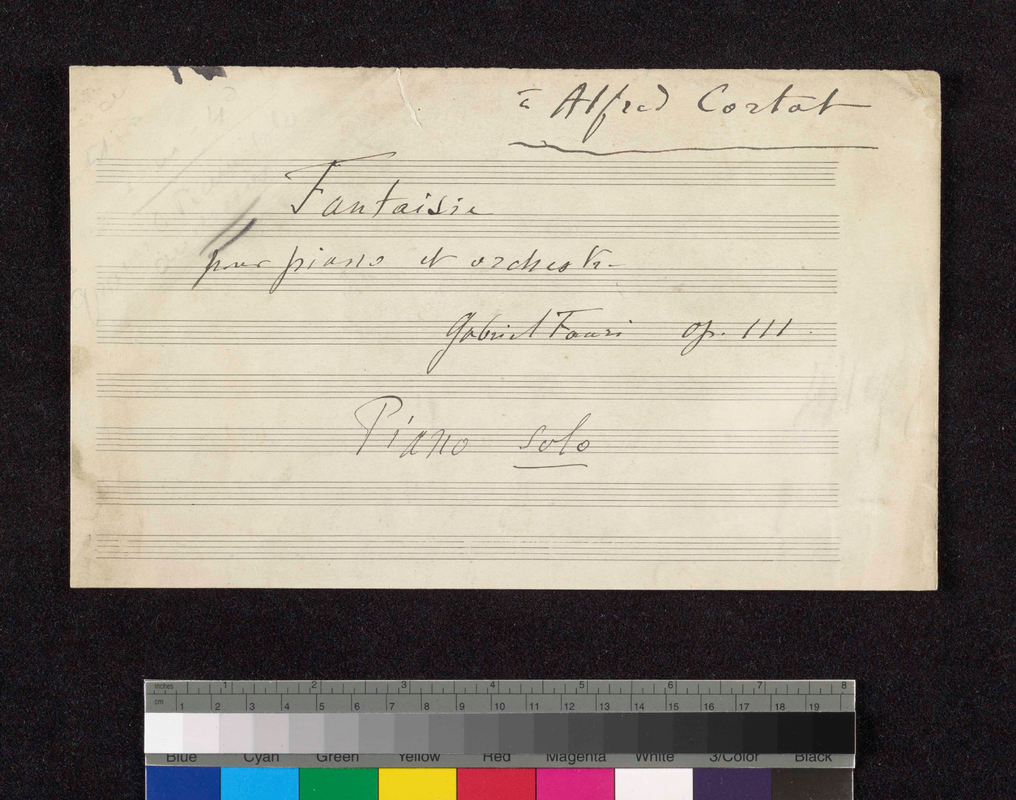 à Alfred Cortot
Fantaisie
pour piano et orchestre
Gabriel Fauré op. 111.
Piano solo
inches 1 2 3 4 5 6 7 8
cm 1 2 3 4 5 6 7 8 9 10 11 12 13 14 15 16 17 18 19
Blue Cyan Green Yellow Red Magenta White 3/Color Black